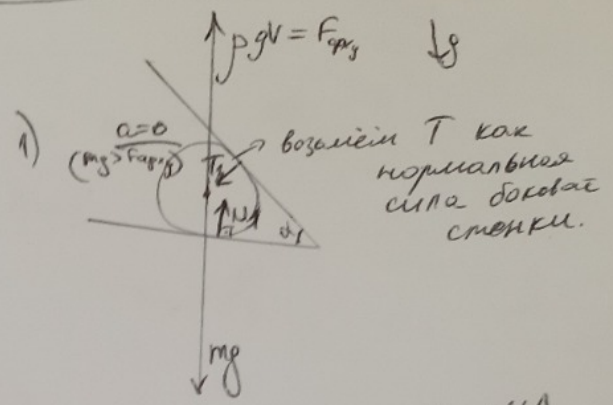 ρgV = Fарх ↓g
1)
a=0
(mg > Fарх)
возьмём T как
нормальная
сила боковой
стенки.
T
N
α
mg